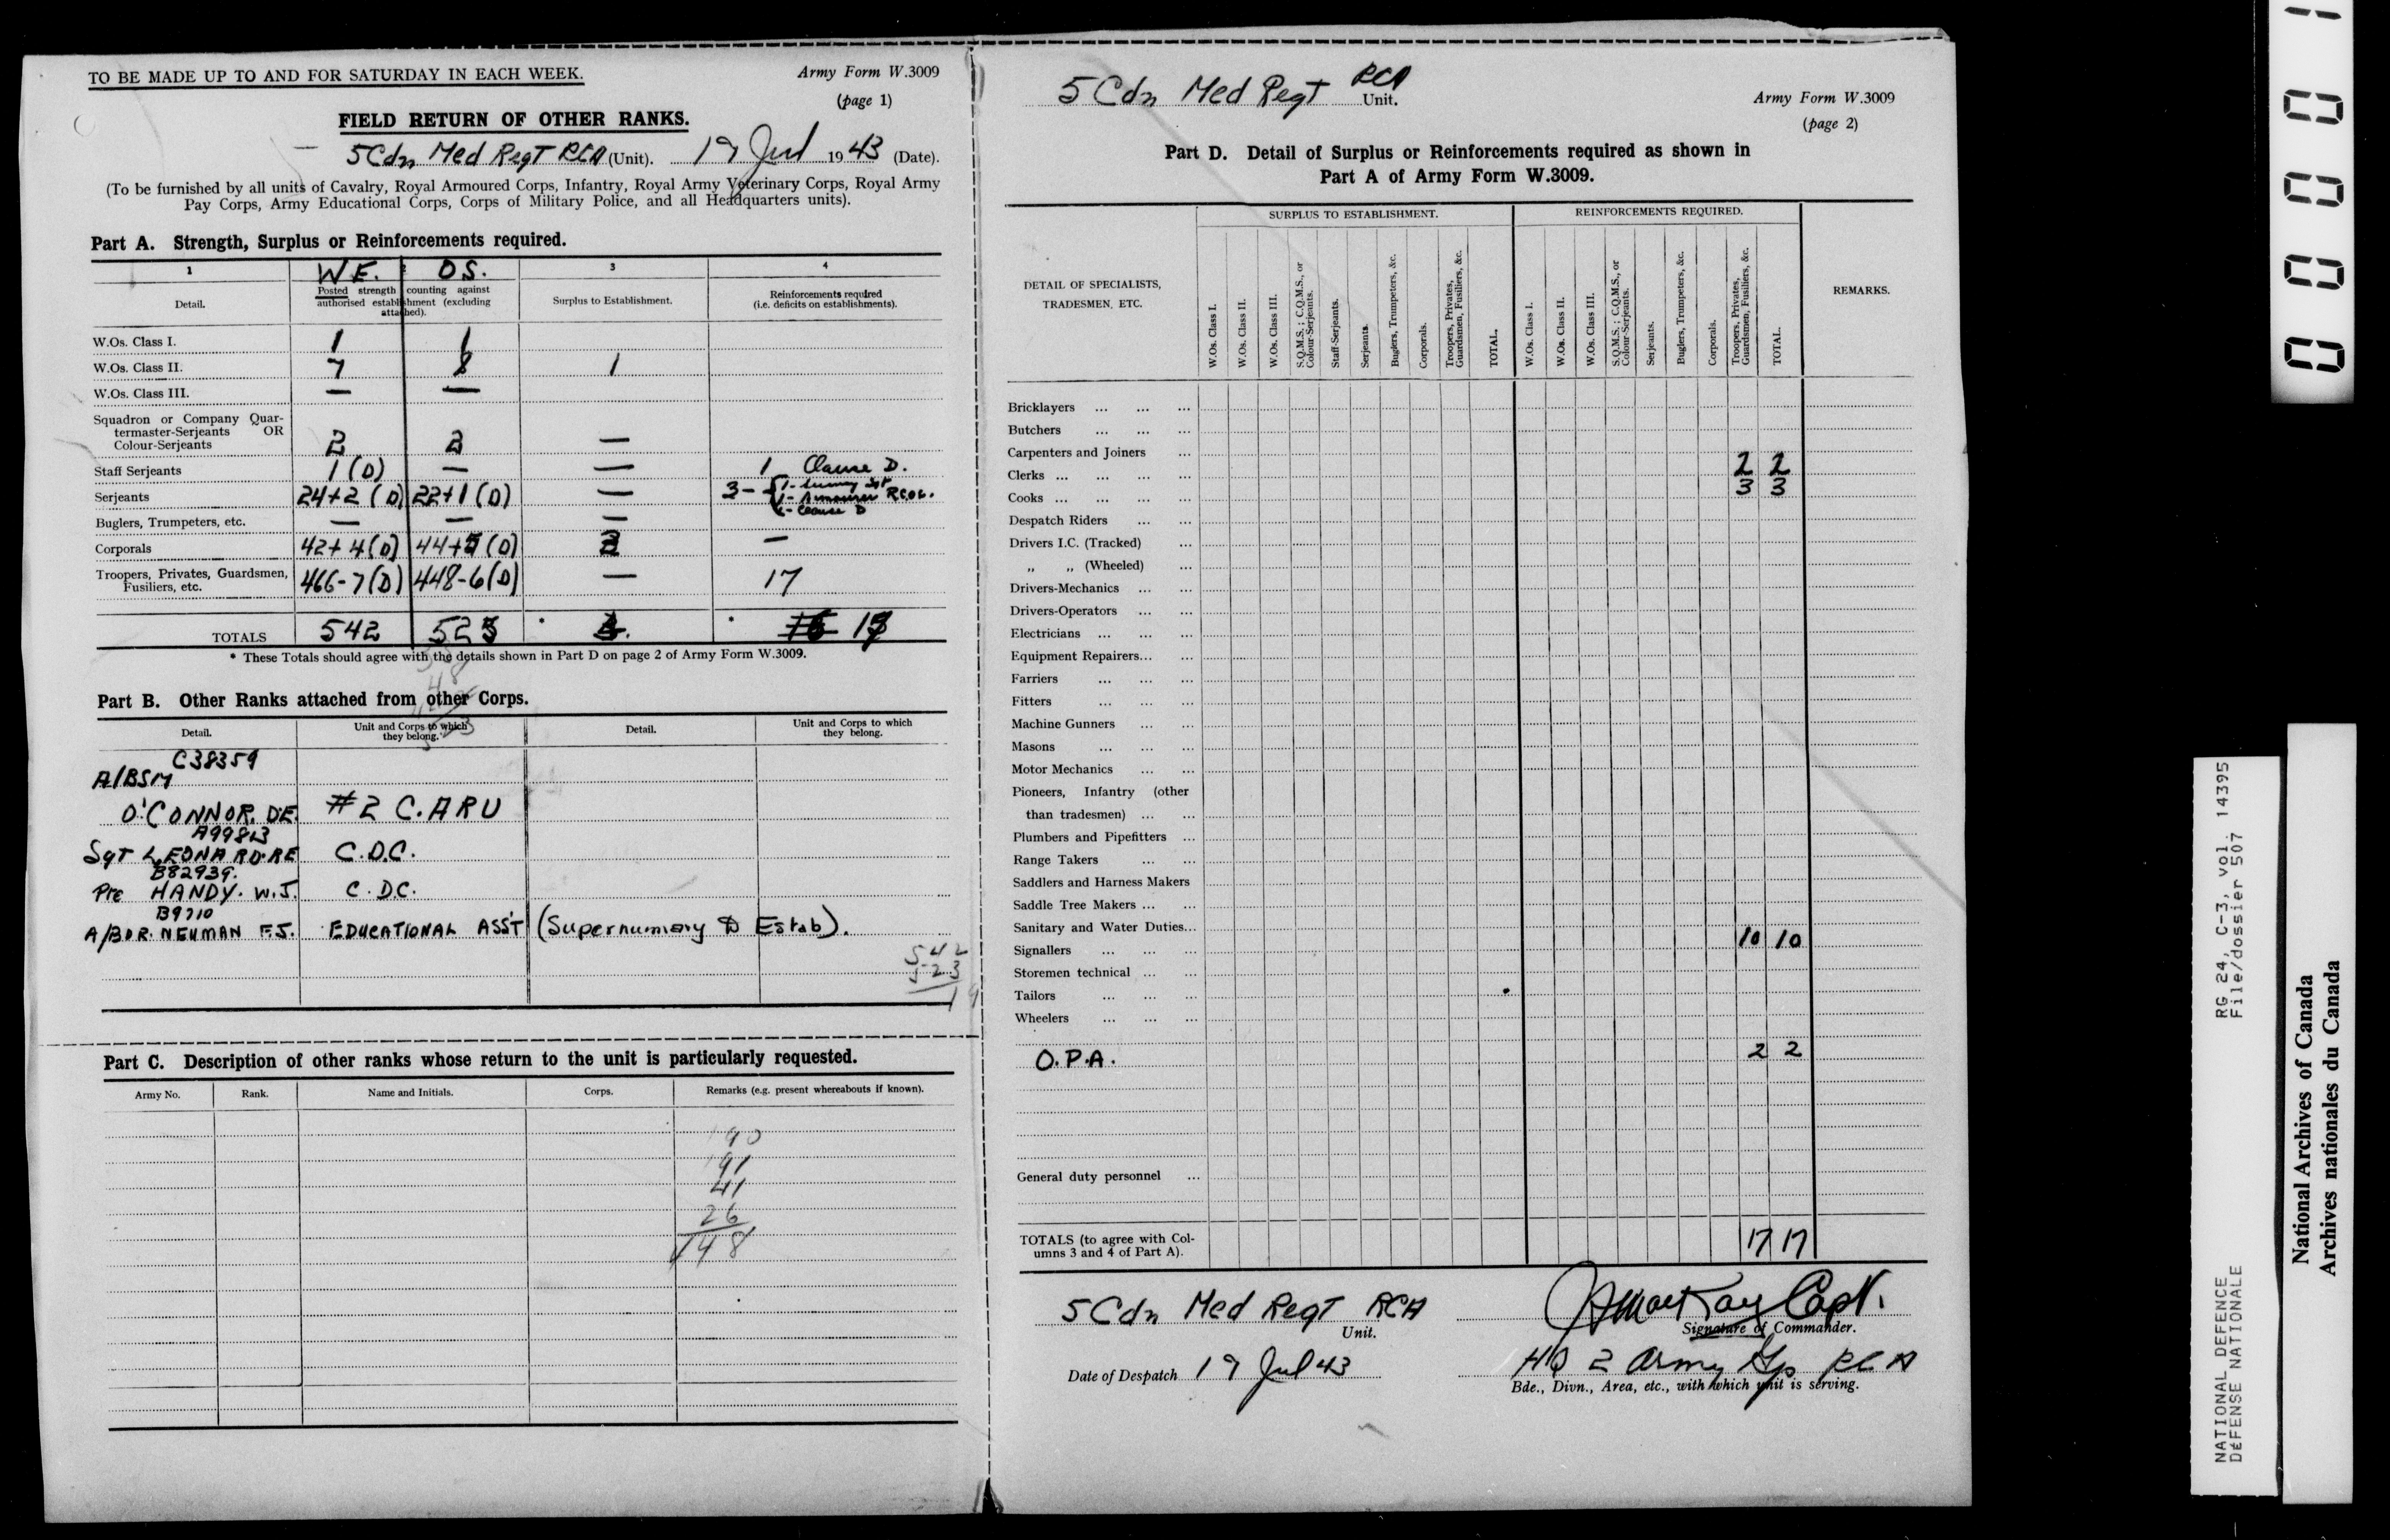 TO BE MADE UP TO AND FOR SATURDAY IN EACH WEEK.
Army Form W.3009
(page 1)
FIELD RETURN OF OTHER RANKS.
5 Cdn Med Regt RCA (Unit). 19 Jul 1943 (Date).
(To be furnished by all units of Cavalry, Royal Armoured Corps, Infantry, Royal Army Veterinary Corps, Royal Army
Pay Corps, Army Educational Corps, Corps of Military Police, and all Headquarters units).
Part A. Strength, Surplus or Reinforcements required.
1 W.E. 2 O.S. 3 4
Detail.
Posted strength counting against
authorised establishment (excluding
attached).
Surplus to Establishment.
Reinforcements required
(i.e. deficits on establishments).
W.Os. Class I. 1 1
W.Os. Class II. 7 8 1
W.Os. Class III. — —
Squadron or Company Quar-
termaster-Serjeants OR
Colour-Serjeants 2 2 —
Staff Serjeants 1 (D) — — 1 Clause D.
Serjeants 24+2 (D) 22+1 (D) — 3 –
1 - Armourer RCOC.
1 - Clause D
Buglers, Trumpeters, etc. — — —
Corporals 42+4 (D) 44+5 (D) 3 —
Troopers, Privates, Guardsmen,
Fusiliers, etc. 466-7 (D) 448-6 (D) — 17
TOTALS 542 523 * *
* These Totals should agree with the details shown in Part D on page 2 of Army Form W.3009.
48
Part B. Other Ranks attached from other Corps.
Detail.
Unit and Corps to which
they belong.
Detail.
Unit and Corps to which
they belong.
C38359
A/BSM
O'CONNOR. D.E. #2 C.ARU
Sgt LEONARD. RE C.D.C.
B82939.
Pte HANDY. W.J. C.D.C.
B9710
A/BDR. NEWMAN F.J. EDUCATIONAL ASS'T (Supernumary to Estab).
542
523
19
Part C. Description of other ranks whose return to the unit is particularly requested.
Army No. Rank. Name and Initials. Corps. Remarks (e.g. present whereabouts if known).
90
91
41
26
148
5 Cdn Med Regt RCA
Unit.
Army Form W.3009
(page 2)
Part D. Detail of Surplus or Reinforcements required as shown in
Part A of Army Form W.3009.
DETAIL OF SPECIALISTS,
TRADESMEN, ETC.
SURPLUS TO ESTABLISHMENT.
REINFORCEMENTS REQUIRED.
REMARKS.
W.Os. Class I.
W.Os. Class II.
W.Os. Class III.
S.Q.M.S.; C.Q.M.S., or
Colour-Serjeants.
Staff-Serjeants.
Serjeants.
Buglers, Trumpeters, &c.
Corporals.
Troopers, Privates,
Guardsmen, Fusiliers, &c.
TOTAL.
W.Os. Class I.
W.Os. Class II.
W.Os. Class III.
S.Q.M.S.; C.Q.M.S., or
Colour-Serjeants.
Serjeants.
Buglers, Trumpeters, &c.
Corporals.
Troopers, Privates,
Guardsmen, Fusiliers, &c.
TOTAL.
Bricklayers ... ... ...
Butchers ... ... ...
Carpenters and Joiners ...
Clerks ... ... ... ... 2 2
Cooks ... ... ... ... 3 3
Despatch Riders ... ...
Drivers I.C. (Tracked) ...
„ „ (Wheeled) ...
Drivers-Mechanics ... ...
Drivers-Operators ... ...
Electricians ... ... ...
Equipment Repairers... ...
Farriers ... ... ...
Fitters ... ... ...
Machine Gunners ...
Masons ... ... ...
Motor Mechanics ... ...
Pioneers, Infantry (other
than tradesmen) ... ...
Plumbers and Pipefitters ...
Range Takers ... ...
Saddlers and Harness Makers
Saddle Tree Makers ... ...
Sanitary and Water Duties...
Signallers ... ... ... 10 10
Storemen technical ... ...
Tailors ... ... ...
Wheelers ... ... ...
O.P.A. 2 2
General duty personnel ...
TOTALS (to agree with Col-
umns 3 and 4 of Part A). 17 17
5 Cdn Med Regt RCA
Unit.
Capt.
Signature of Commander.
Date of Despatch 19 Jul 43
HQ 2 Army Gp RCA
Bde., Divn., Area, etc., with which unit is serving.
0 0 0 1
NATIONAL DEFENCE RG 24, C-3, vol. 14395
DÉFENSE NATIONALE File/dossier 507
National Archives of Canada
Archives nationales du Canada